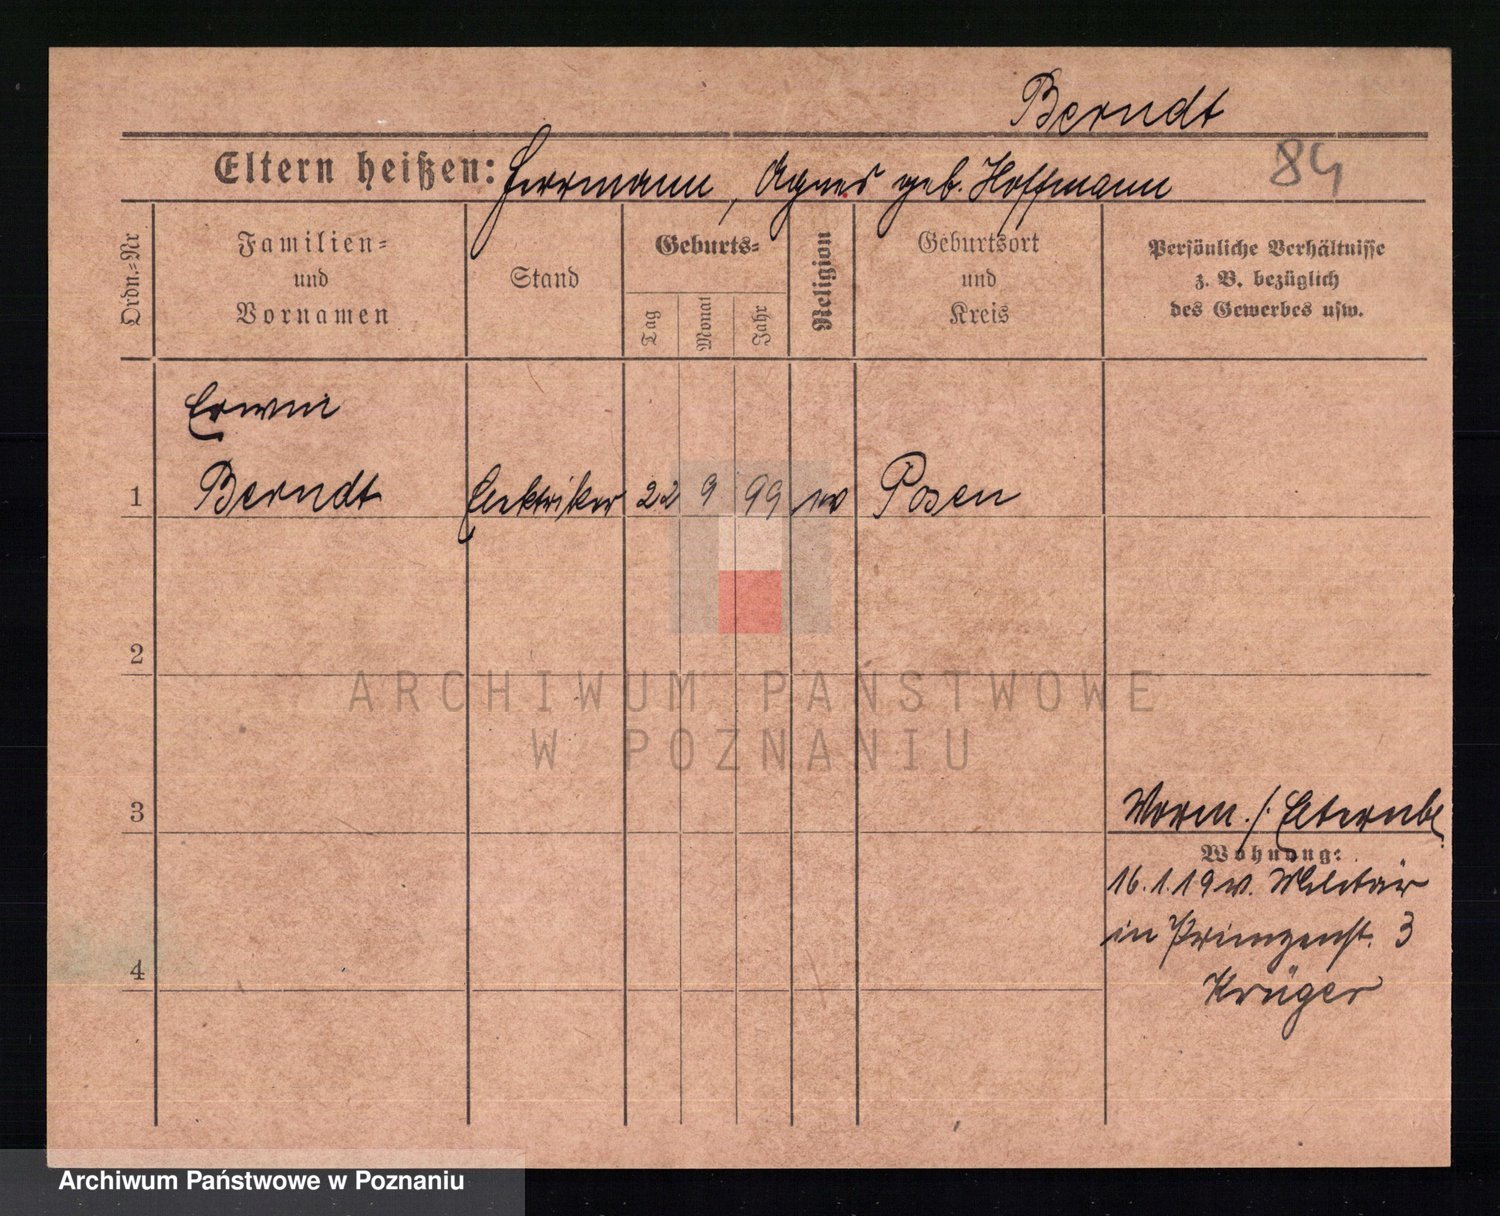 Berndt
84
Eltern heißen: Herrmann, Agnes geb. Hoffmann
Ordn.-Nr
Familien-
und
Vornamen
Stand
Geburts-
Tag
Monat
Jahr
Religion
Geburtsort
und
Kreis
Persönliche Verhältnisse
z. B. bezüglich
des Gewerbes usw.
Erwin
1 Berndt Elektriker 22 9 99 Posen
2
ARCHIWUM PAŃSTWOWE
W POZNANIU
3
Worm. /: Elternbl
Wohnung:
16.1.19 v. Militär
in Prinzenst. 3
Krüger
4
Archiwum Państwowe w Poznaniu